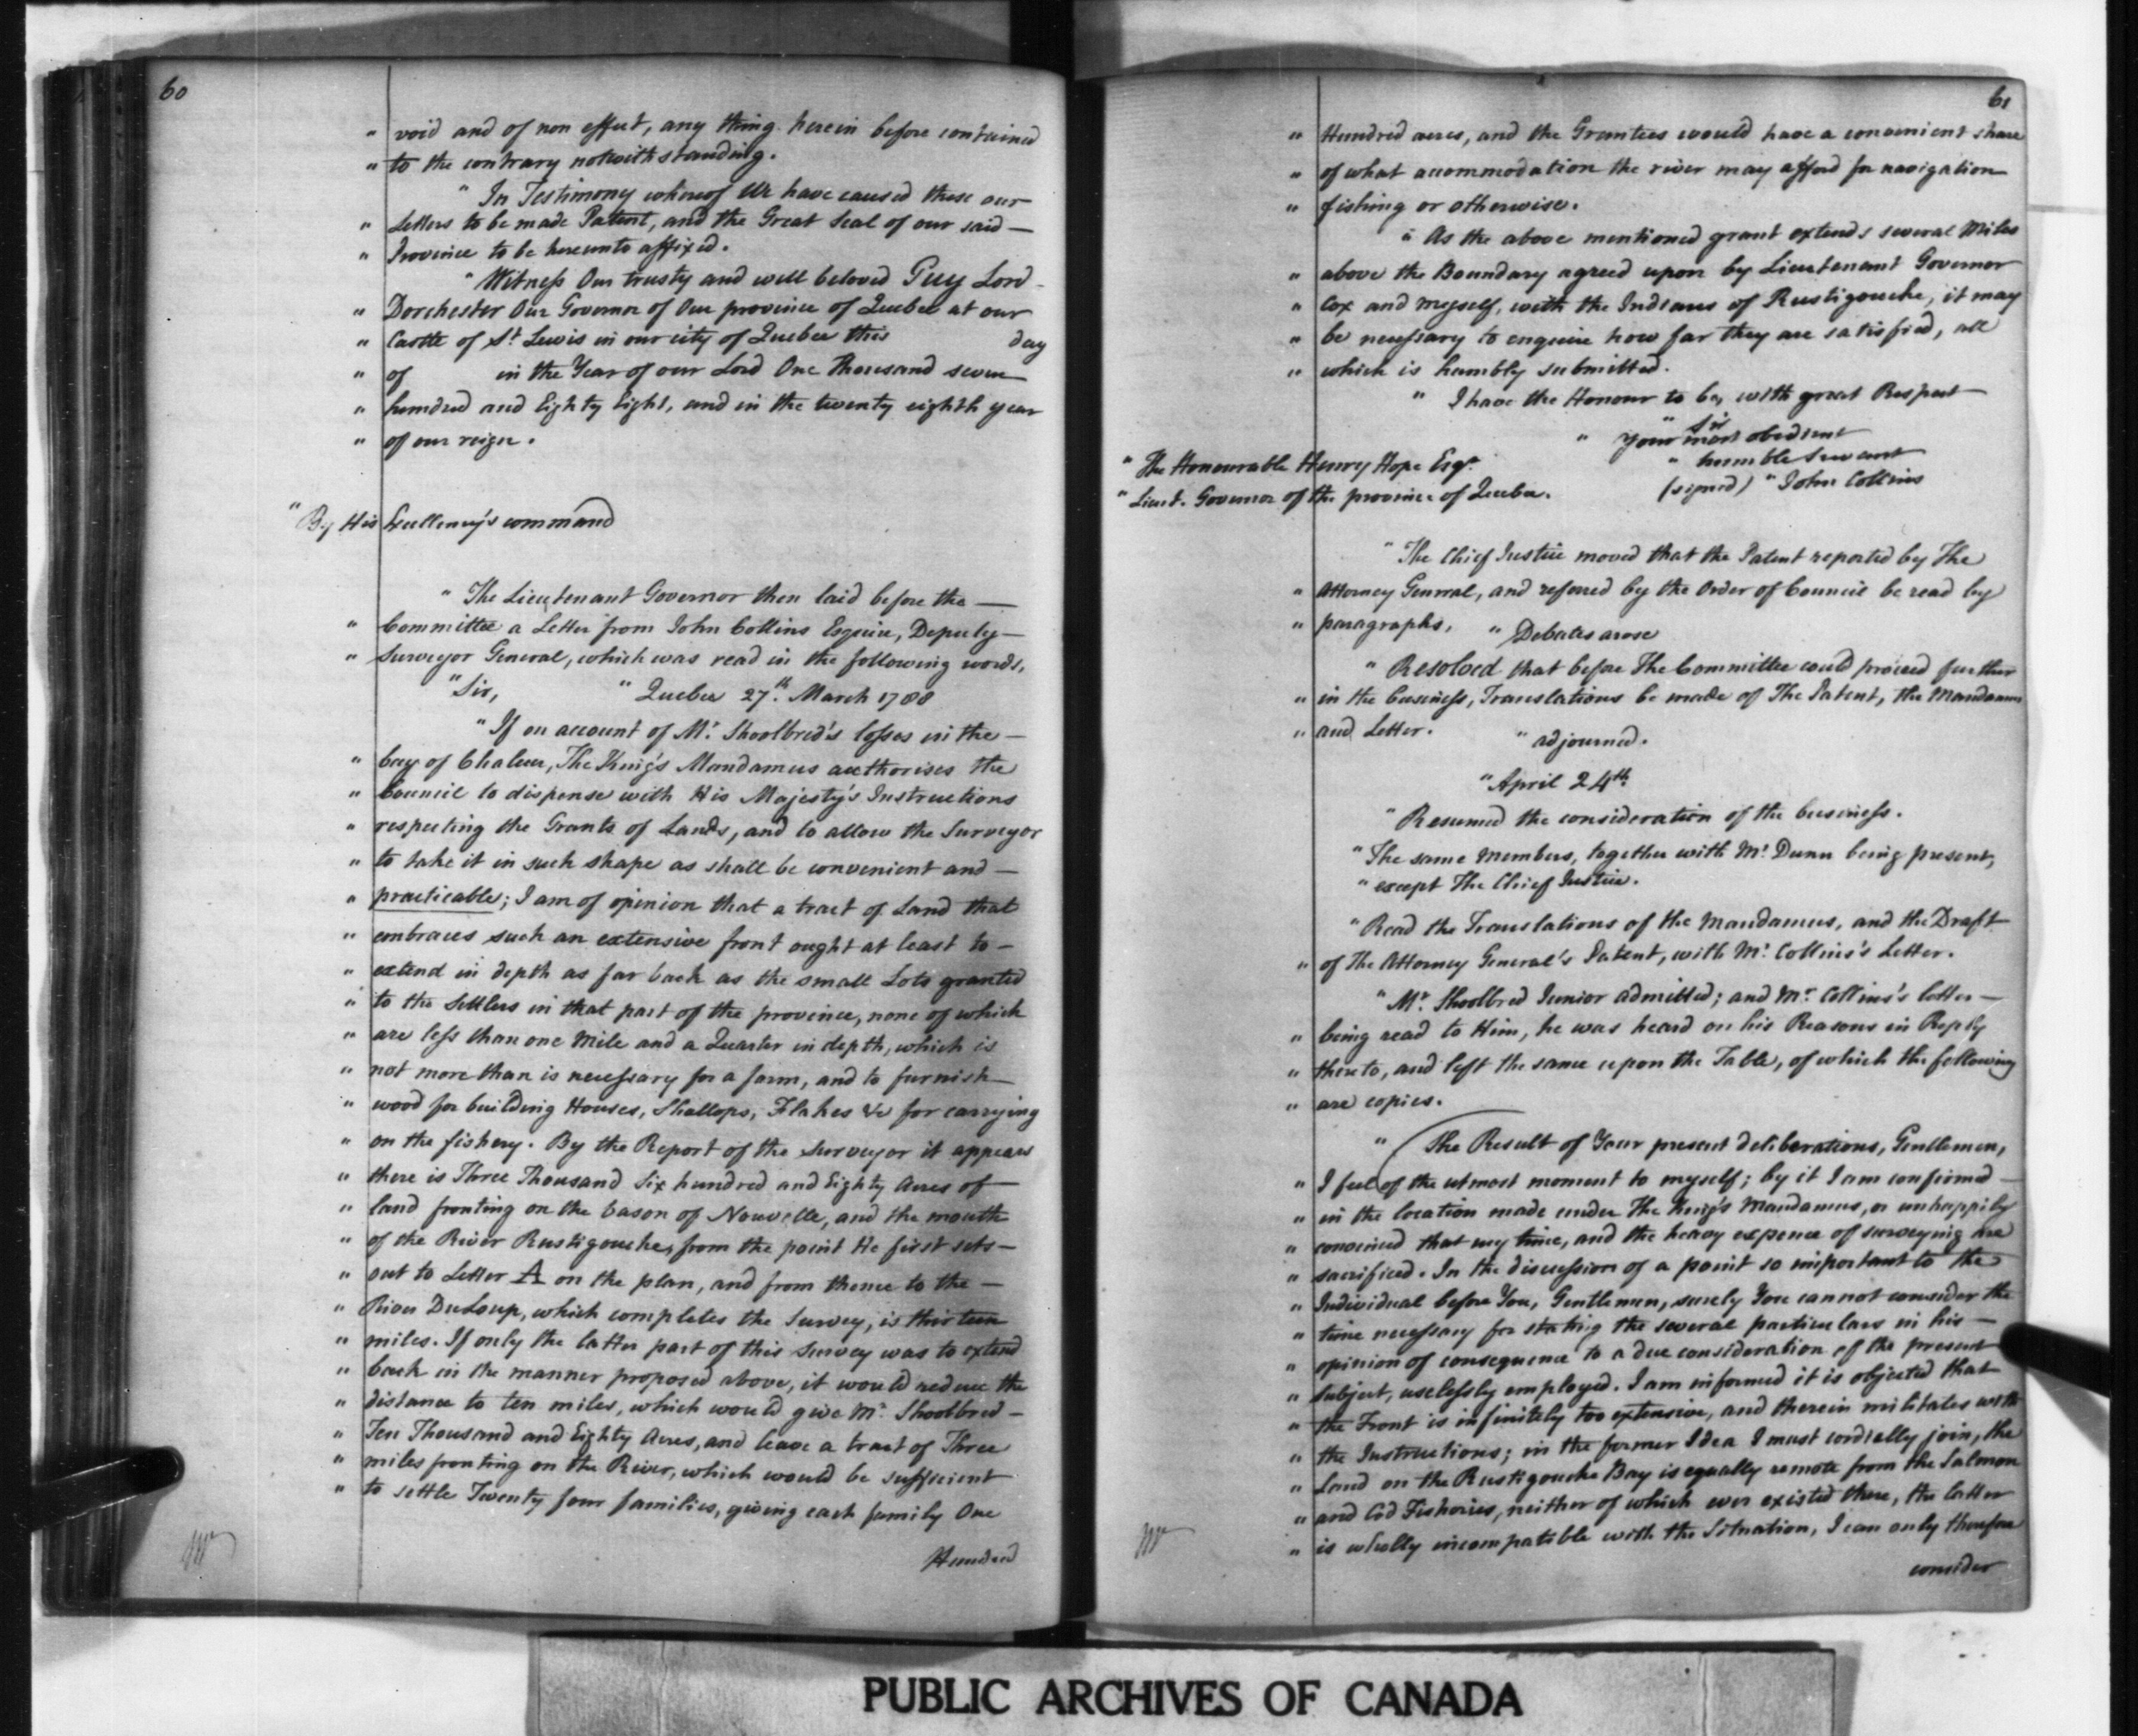 60
" void and of non effect, any thing herein before contained
" to the contrary notwithstanding.
" In Testimony whereof We have caused these our
" Letters to be made Patent, and the Great Seal of our said —
" Province to be hereunto affixed.
" Witness Our trusty and well beloved Guy Lord
" Dorchester Our Governor of Our province of Quebec at our
" Castle of St Lewis in our city of Quebec this day
" of in the Year of our Lord One Thousand seven
" hundred and Eighty Eight, and in the twenty eighth year
" of our reign.
" By His Excellency's command
" The Lieutenant Governor then laid before the —
" Committee a Letter from John Collins Esquire, Deputy —
" Surveyor General, which was read in the following words,
" Sir, " Quebec 27th March 1788
" If on account of Mr Shoolbred's losses in the —
" bay of Chaleur, The King's Mandamus authorises the
" Council to dispense with His Majesty's Instructions
" respecting the Grants of Lands, and to allow the Surveyor
" to take it in such shape as shall be convenient and —
" practicable; I am of opinion that a tract of Land that
" embraces such an extensive front ought at least to —
" extend in depth as far back as the small Lots granted
" to the Settlers in that part of the province, none of which
" are less than one Mile and a Quarter in depth, which is
" not more than is necessary for a farm, and to furnish
" wood for building Houses, Shallops, Flakes &c for carrying
" on the fishery. By the Report of the Surveyor it appears
" there is Three Thousand Six hundred and Eighty Acres of
" land fronting on the bason of Nouvelle, and the mouth
" of the River Rustigouche, from the point He first sets —
" out to Letter A on the plan, and from thence to the —
" River DuLoup, which completes the Survey, is thirteen
" miles. If only the latter part of this Survey was to extend
" back in the manner proposed above, it would reduce the
" distance to ten miles, which would give Mr Shoolbred —
" Ten Thousand and Eighty Acres, and leave a tract of Three
" miles fronting on the River, which would be sufficient
" to settle Twenty four families, giving each family One
Hundred
61
" Hundred acres, and the Grantees would have a convenient share
" of what accommodation the river may afford for navigation
" fishing or otherwise.
" As the above mentioned grant extends several Miles
" above the Boundary agreed upon by Lieutenant Governor
" Cox and myself, with the Indians of Rustigouche, it may
" be necessary to enquire how far they are satisfied, all
" which is humbly submitted.
" I have the Honour to be, with great Respect
" Sir
" Your most obedient
" humble Servant
" The Honourable Henry Hope Esqr.
(signed) " John Collins
" Lieut. Governor of the province of Quebec.
" The Chief Justice moved that the Patent reported by The
" Attorney General, and referred by the Order of Council be read by
" paragraphs. " Debates arose
" Resolved that before The Committee could proceed further
" in the business, Translations be made of The Patent, the Mandamus
" and Letter. " adjourned.
" April 24th
" Resumed the consideration of the business.
" The same Members, together with Mr Dunn being present,
" except The Chief Justice.
" Read the Translations of the Mandamus, and the Draft
" of The Attorney General's Patent, with Mr Collins's Letter.
" Mr Shoolbred Junior admitted; and Mr Collins's letter —
" being read to Him, he was heard on his Reasons in Reply
" thereto, and left the same upon the Table, of which the following
" are copies.
" The Result of Your present deliberations, Gentlemen,
" I feel of the utmost moment to myself; by it I am confirmed —
" in the location made under The King's Mandamus, or unhappily
" convinced that my time, and the heavy expence of surveying are
" sacrificed. In the discussion of a point so important to the
" Individual before You, Gentlemen, surely You cannot consider the
" time necessary for stating the several particulars in his —
" opinion of consequence to a due consideration of the present
" subject, uselessly employed. I am informed it is objected that
" the Front is infinitely too extensive, and therein militates with
" the Instructions; in the former Idea I must cordially join, the
" Land on the Rustigouche Bay is equally remote from the Salmon
" and Cod Fisheries, neither of which ever existed there, the latter
" is wholly incompatible with the Situation, I can only therefore
consider
PUBLIC ARCHIVES OF CANADA